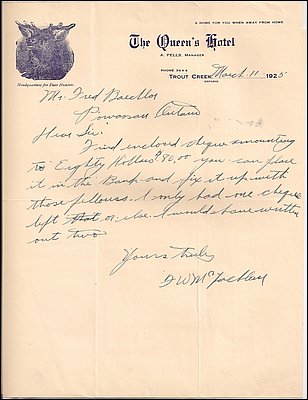 A HOME FOR YOU WHEN AWAY FROM HOME
The Queen's Hotel
A. PELLS, MANAGER
Headquarters for Deer Hunters
PHONE
TROUT CREEK, March 11 1925
ONTARIO
Mr. Fred
Powassan Ontario
Dear Sir:
Find enclosed cheque amounting
to Eighty Dollars $80.00 you can place
it in the Bank and fix it up with
those fellows. I only had one cheque
left that or else I would have written
out two
Yours truly